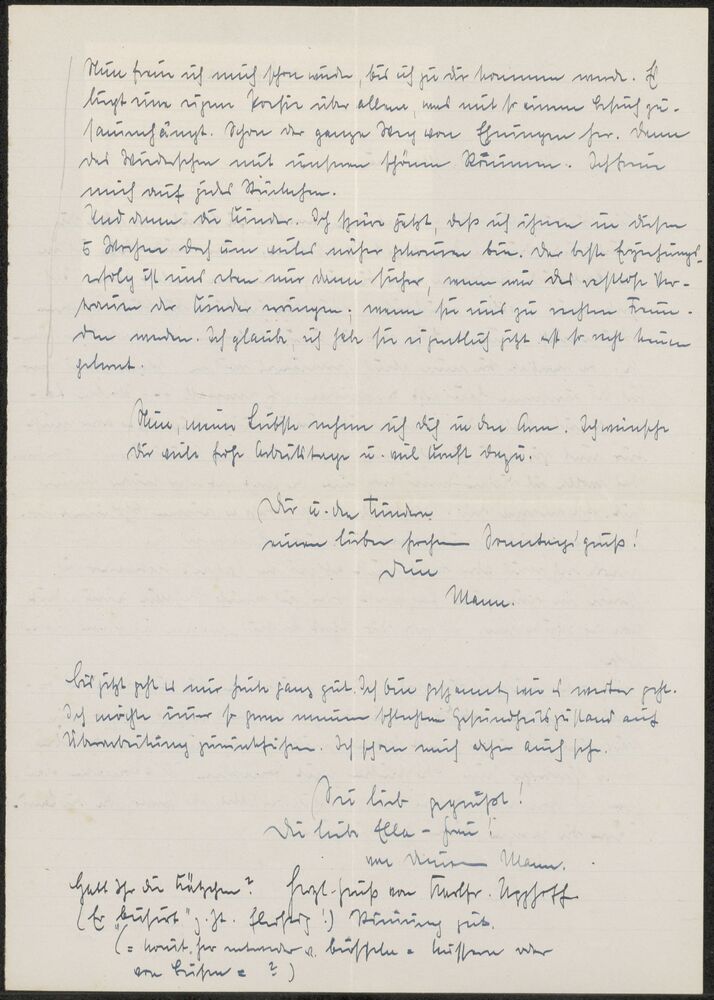 Nun freue ich mich schon wieder, bis ich zu dir kommen werde. Es
liegt eine eigene Poesie über allem, was mit so einem Besuch zu-
sammenhängt. Schon der ganze Weg von Ehningen her. Dann
das Wiedersehen mit unseren schönen Räumen. Ich freue
mich auf jedes Stückchen.
Und dann die Kinder. Ich spüre jetzt, daß ich ihnen in diesen
5 Wochen doch um vieles näher gekommen bin. Der beste Erziehungs-
erfolg ist uns eben nur dann sicher, wenn wir das restlose Ver-
trauen der Kinder erringen, wenn sie uns zu rechten Freun-
den werden. Ich glaube, ich habe sie eigentlich jetzt erst so recht kennen
gelernt.
Nun, meine Liebste nehme ich dich in den Arm. Ich wünsche
dir viele frohe Arbeitstage u. viel Kraft dazu.
Dir u. den Kindern
einen lieben frohen Sonntagsgruß!
Dein
Mann.
Bis jetzt geht es mir heute ganz gut. Ich bin gespannt, wie es weiter geht.
Ich möchte immer so gern meinen schlechten Gesundheitszustand auf
Überarbeitung zurückführen. Ich schone mich aber auch sehr.
Sei lieb gegrüßt!
Du liebe Ella-Frau!
von deinem Mann.
Habt Ihr die Kätzchen? Herzl. Gruß von
(Er z. Zt. fleißig!) Stimmung gut.
(= kommt her entweder v. = küssen oder
von = ?)